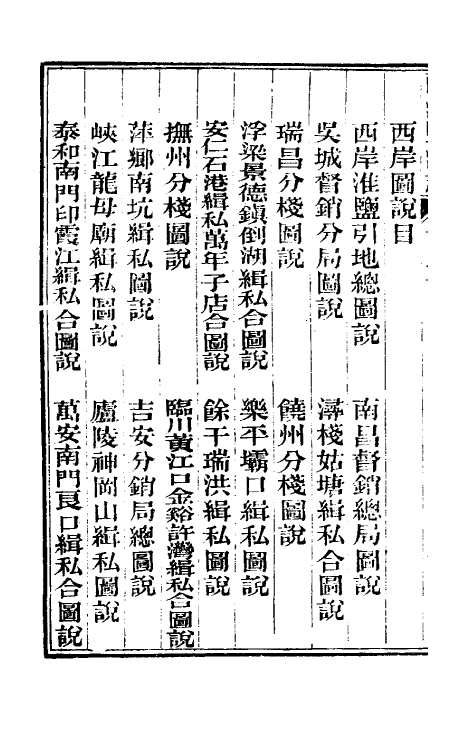 西岸圖說目
西岸淮鹽引地總圖說
南昌督銷總局圖說
吳城督銷分局圖說
潯棧姑塘緝私合圖說
瑞昌分棧圖說
饒州分棧圖說
浮梁景德鎮倒湖緝私合圖說
樂平壩口緝私圖說
安仁石港緝私萬年子店合圖說
餘干瑞洪緝私圖說
撫州分棧圖說
臨川黃江口金谿許灣緝私合圖說
萍鄉南坑緝私圖說
吉安分銷局總圖說
峽江龍母廟緝私圖說
廬陵神岡山緝私圖說
泰和南門印霞江緝私合圖說
萬安南門良口緝私合圖說